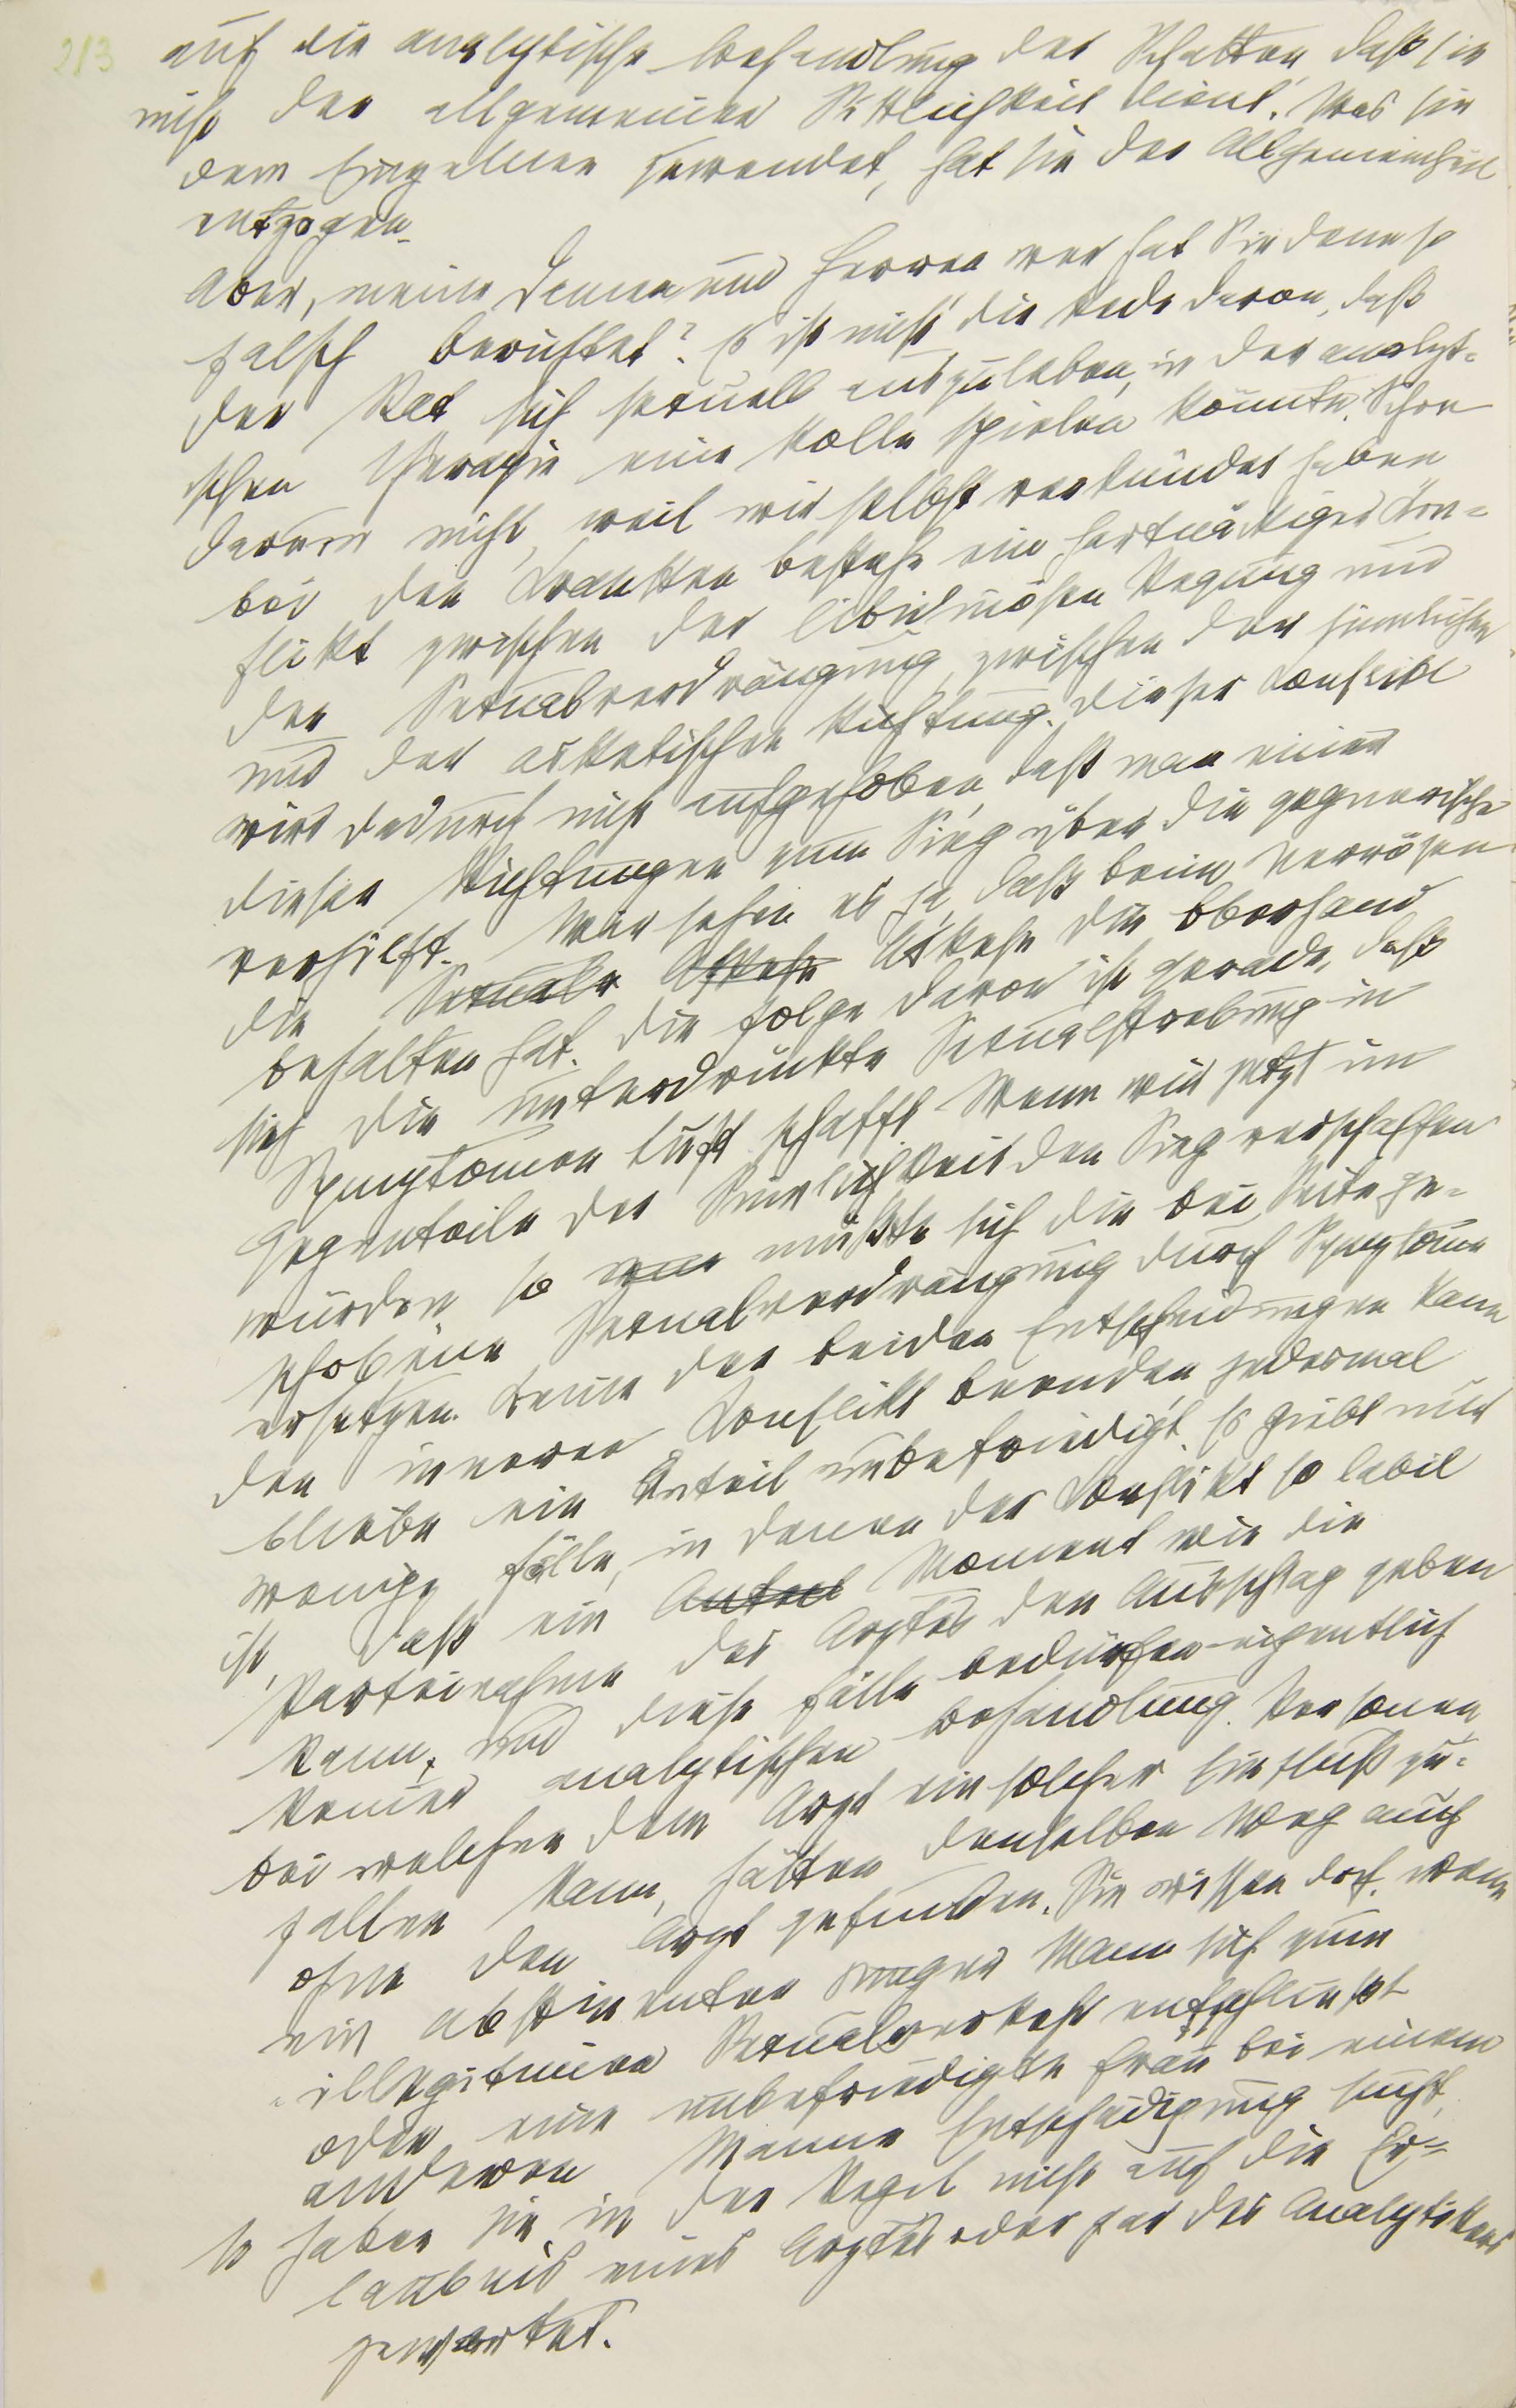 213
auf die analytische Behandlung der Schatten, daß sie
nicht der allgemeinen Sittlichkeit dient. Was sie
dem Einzelnen zuwendet, hat sie der Allgemeinheit
entzogen.
Aber, meine Damen und Herren wer hat Sie denn so
falsch berichtet? Es ist nicht die Rede davon, daß
der Rat sich sexuell auszuleben, in der analyt-
schen Therapie eine Rolle spielen könnte. Schon
darum nicht, weil wir selbst verkündet haben
bei den Kranken bestehe ein hartnäckiger Kon-
flikt zwischen der libidinösen Regung und
der Sexualverdrängung, zwischen der sinnlichen
und der asketischen Richtung. Dieser Konflikt
wird dadurch nicht aufgehoben, daß man einer
dieser Richtungen zum Sieg über die gegnerische
verhilft. Wir sehen es ja, daß beim Nervösen
die Sexuale Askese Askese die Oberhand
behalten hat. Die Folge davon ist gerade, daß
sich die unterdrückte Sexualstrebung in
Symptomen Luft schafft. Wenn wir jetzt im
Gegenteile der Sinnlichkeit den Sieg verschaffen
würden, so müßte sich die bei Seite ge-
schobene Sexualverdrängung durch Symptome
ersetzen. Keine der beiden Entscheidungen kann
den inneren Konflikt beenden, jedesmal
bliebe ein Anteil unbefriedigt. Es giebt nur
wenige Fälle, in denen der Konflikt so labil
ist, daß ein Anteil Moment wie die
Parteinahme des Arztes den Ausschlag geben
kann, und diese Fälle bedürfen eigentlich
keiner analytischen Behandlung. Personen,
bei welchen dem Arzt ein solcher Einfluß zu-
fallen kann, hätten denselben Weg auch
ohne den Arzt gefunden. Sie wissen doch, wenn
ein abstinenter junger Mann sich zum
illegitimen Sexualverkehr entschliesst
oder eine unbefriedigte Frau bei einem
anderen Manne Entschädigung sucht,
so haben sie in der Regel nicht auf die Er-
laubnis eines Arztes oder gar des Analytikers
gewartet.